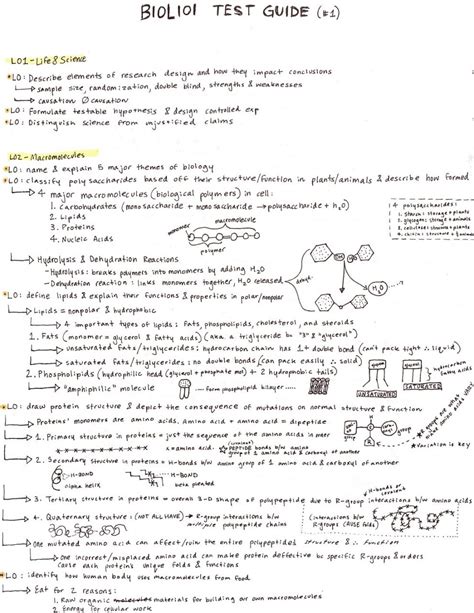 BIOL101 TEST GUIDE (#1)
LO1 - Life & Science
*LO: Describe elements of research design and how they impact conclusions
→ sample size, randomization, double blind, strengths & weaknesses
→ causation ∅ causation
*LO: Formulate testable hypothesis & design controlled exp
*LO: Distinguish science from unjustified claims
LO2 - Macromolecules
*LO: name & explain 5 major themes of biology
*LO: classify polysaccharides based off their structure/function in plants/animals & describe how formed
→ 4 major macromolecules (biological polymers) in cell:
1. Carbohydrates (monosaccharide + monosaccharide → polysaccharide + h₂O)
2. Lipids
3. Proteins
4. Nucleic Acids
4 polysaccharides:
1. starch: storage + plants
2. glycogen: storage + animals
3. cellulose: structure + plants
4. chitin: structure + animals
macromolecule
monomer
polymer
→ Hydrolysis & Dehydration Reactions
- Hydrolysis: breaks polymers into monomers by adding H₂O
- Dehydration reaction: links monomers together, H₂O released
*LO: define lipids & explain their functions & properties in polar/nonpolar
→ Lipids = nonpolar & hydrophobic
→ 4 important types of lipids: fats, phospholipids, cholesterol, and steroids
1. Fats (monomer = glycerol & fatty acids) (aka a triglyceride bc "3" & "glycerol")
→ unsaturated fats/triglycerides: hydrocarbon chain has 1+ double bond (can't pack tight ∴ liquid)
→ saturated fats/triglycerides: no double bonds (can pack easily ∴ solid)
2. Phospholipids (hydrophilic head (glycerol + phosphate mol) + 2 hydrophobic tails)
→ "amphiphilic" molecule
form phospholipid bilayer
UNSATURATED
SATURATED
hydrocarbon
fatty acids
*LO: draw protein structure & depict the consequence of mutations on normal structure & function
→ Proteins' monomers are amino acids, amino acid + amino acid = dipeptide
→ 1. Primary structure in proteins = just the sequence of the amino acids in mer
(covalent)
x = amino acid - PEPTIDE bonds b/w amino
group of 1 amino acid & carboxyl of another
group
*R groups are what
*variation is key
→ 2. Secondary structure in proteins = H-bonds b/w amine group of 1 amino acid and carboxyl of another
H-BOND
alpha helix
H-BOND
beta pleated
→ 3. Tertiary structure in proteins = overall 3-D shape of polypeptide due to R-group interactions
H-bonds or
covalent
→ 4. Quaternary structure (NOT ALL HAVE) → R-group interactions b/w
polypeptide chains
(interactions b/w
R-groups CAUSE folds)
→ One mutated amino acid can affect/ruin the entire polypeptide structure & ∴ function
→ one incorrect/misplaced amino acid can make protein defective bc specific R-groups & orders
cause each protein's unique folds & functions
*LO: identify how human body uses macromolecules from food
→ Eat to obtain:
1. Raw organic materials for building our own macromolecules
2. Energy for cellular work